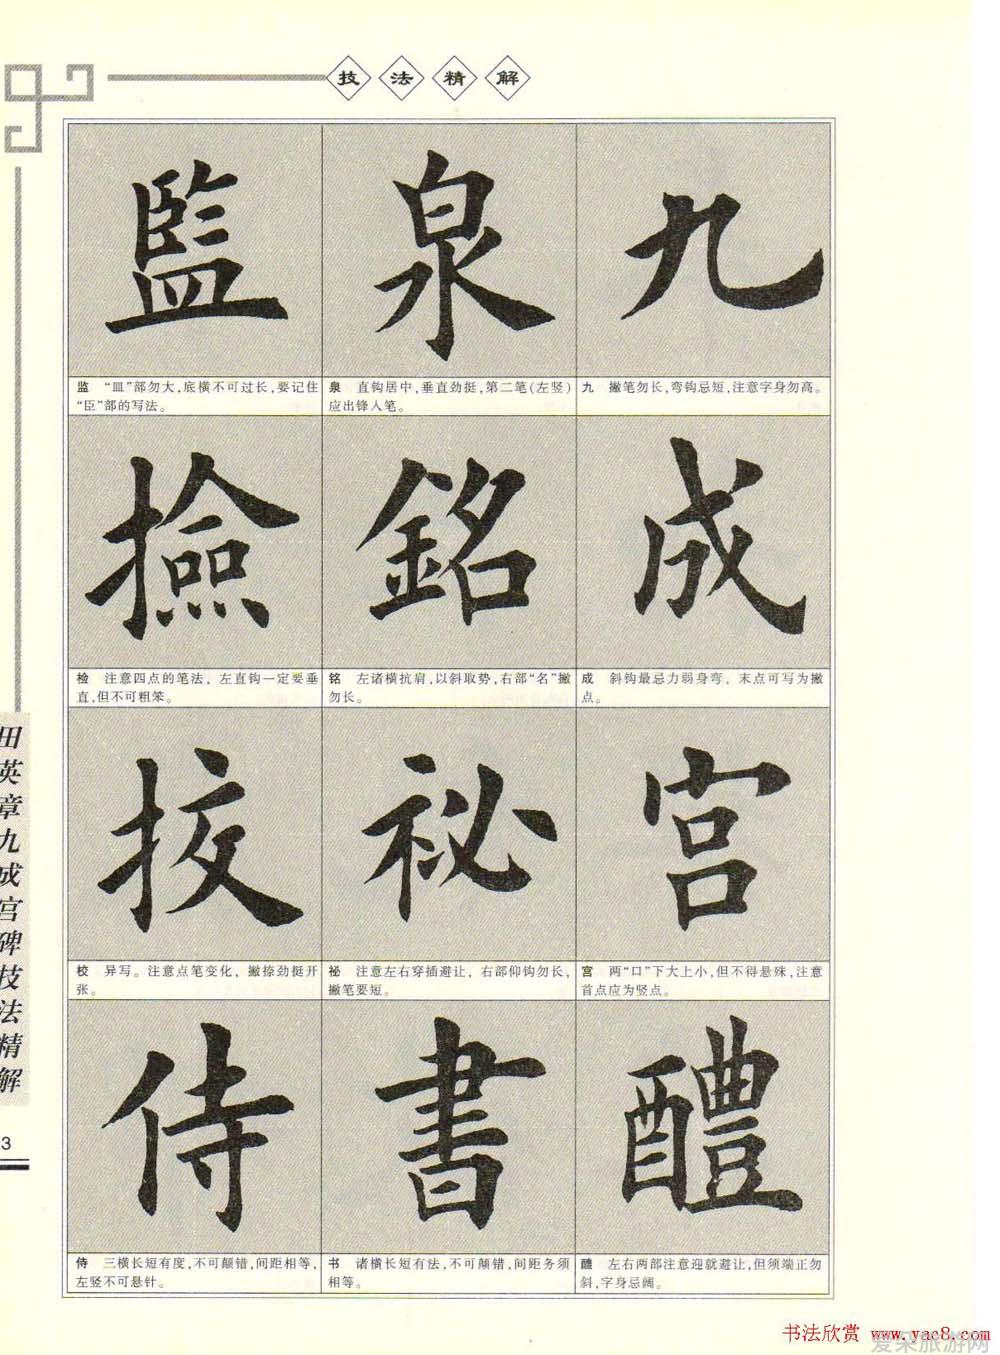 技法精解
監
泉
九
监 “皿”部勿大，底横不可过长，要记住
“臣”部的写法。
泉 直钩居中，垂直劲挺，第二笔(左竖)
应出锋入笔。
九 撇笔勿长，弯钩忌短，注意字身勿高。
撿
銘
成
检 注意四点的笔法，左直钩一定要垂
直，但不可粗笨。
铭 左诸横抗肩，以斜取势，右部“名”撇
勿长。
成 斜钩最忌力弱身弯，末点可写为撇
点。
挍
祕
宫
校 异写。注意点笔变化，撇捺劲挺开
张。
祕 注意左右穿插避让，右部仰钩勿长，
撇笔要短。
宫 两“口”下大上小，但不得悬殊，注意
首点应为竖点。
侍
書
醴
侍 三横长短有度，不可颠错，间距相等，
左竖不可悬针。
书 诸横长短有法，不可颠错，间距务须
相等。
醴 左右两部注意迎就避让，但须端正勿
斜，字身忌阔。
田英章九成宫碑技法精解
3
书法欣赏 www.yac8.com
爱采旅游网